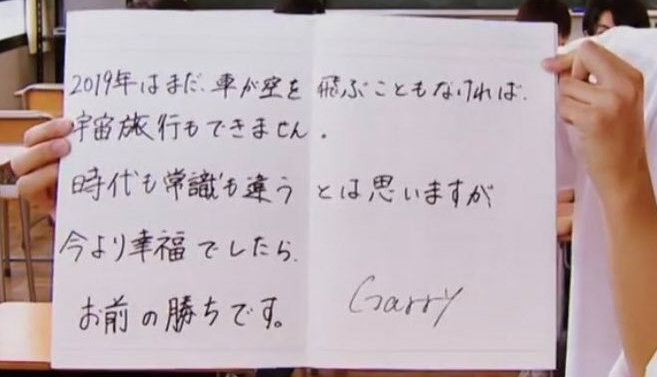 2019年はまだ、車が空を飛ぶこともなければ、
宇宙旅行もできません。
時代も常識も違うとは思いますが
今より幸福でしたら、
お前の勝ちです。
Garry